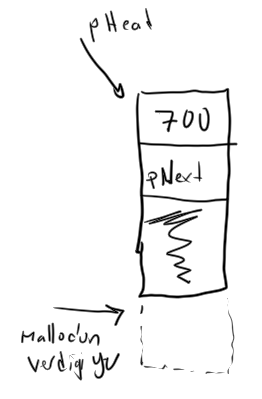 pHead
700
pNext
Malloc'un
verdiği yer